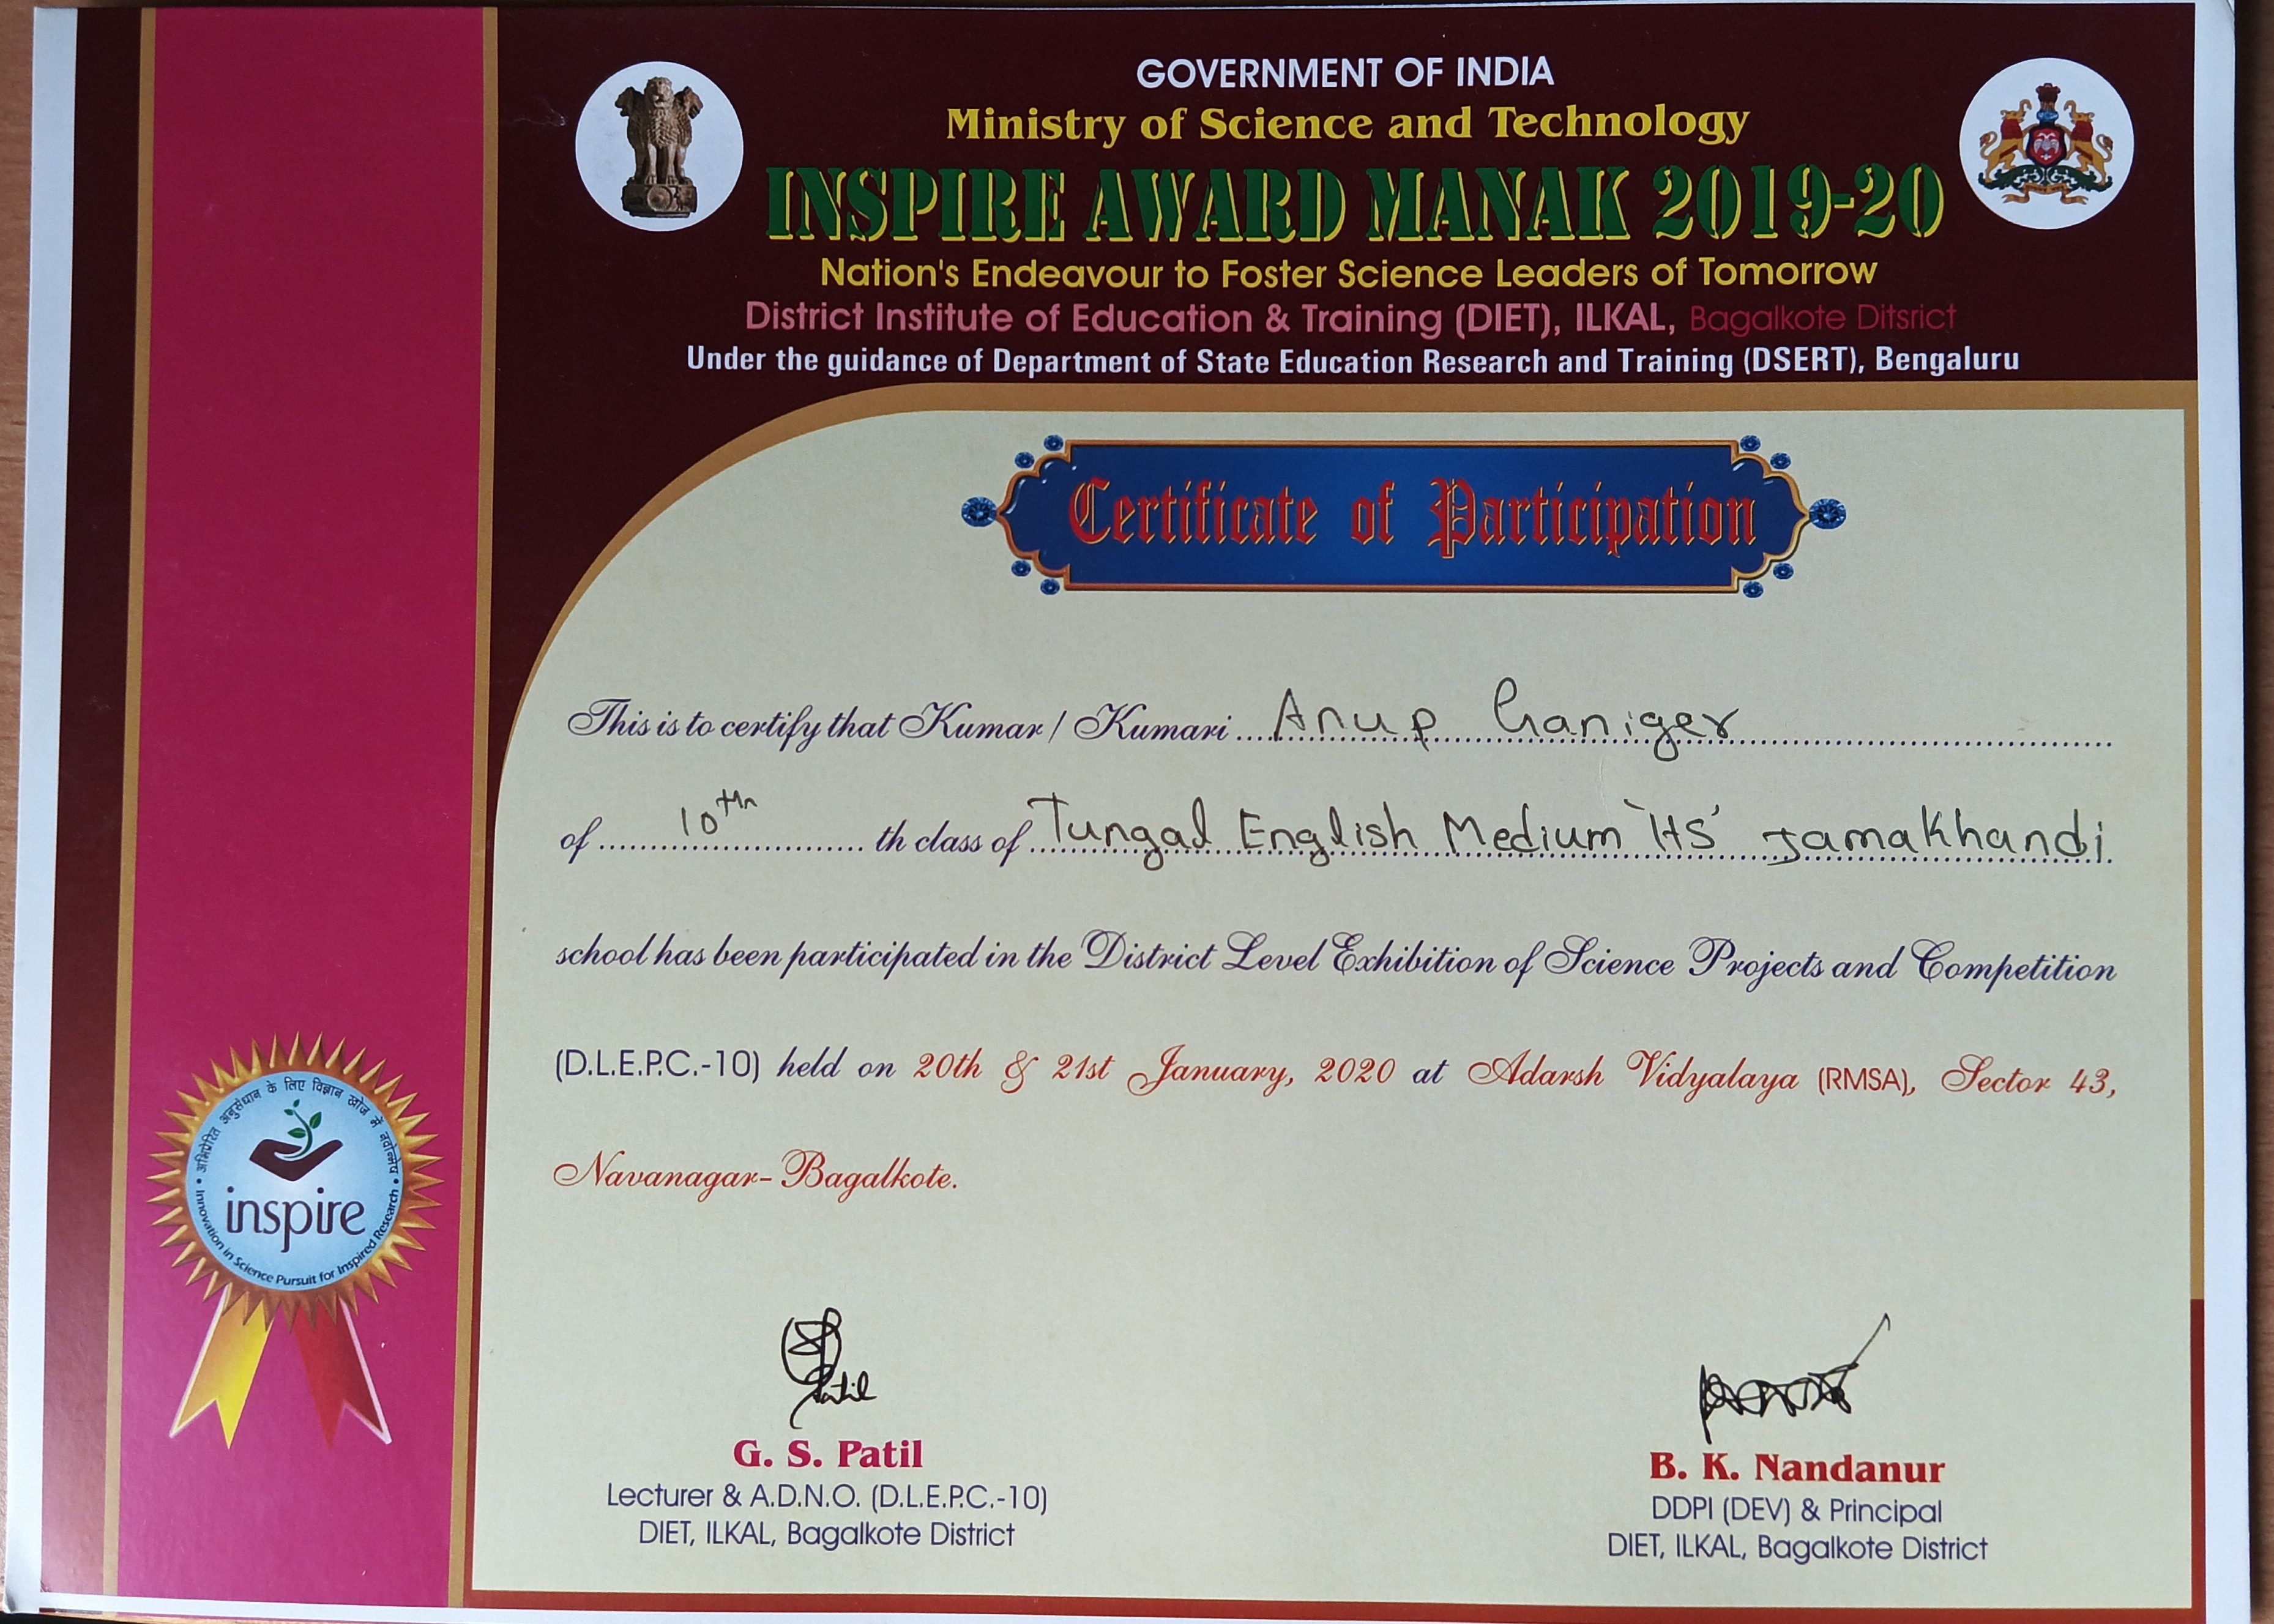 GOVERNMENT OF INDIA
Ministry of Science and Technology
INSPIRE AWARD MANAK 2019-20
Nation's Endeavour to Foster Science Leaders of Tomorrow
District Institute of Education & Training (DIET), ILKAL, Bagalkote Ditsrict
Under the guidance of Department of State Education Research and Training (DSERT), Bengaluru
Certificate of Participation
This is to certify that Kumar / Kumari Anup Ganiger
of 10th th class of Tungal English Medium 'HS' Jamakhandi
school has been participated in the District Level Exhibition of Science Projects and Competition
(D.L.E.P.C.-10) held on 20th & 21st January, 2020 at Adarsh Vidyalaya (RMSA), Sector 43,
Navanagar- Bagalkote.
अभिप्रेरित अनुसंधान के लिए विज्ञान खोज में नवोन्मेष
inspire
Innovation in Science Pursuit for Inspired Research
Patil
G. S. Patil
Lecturer & A.D.N.O. (D.L.E.P.C.-10)
DIET, ILKAL, Bagalkote District
B. K. Nandanur
DDPI (DEV) & Principal
DIET, ILKAL, Bagalkote District